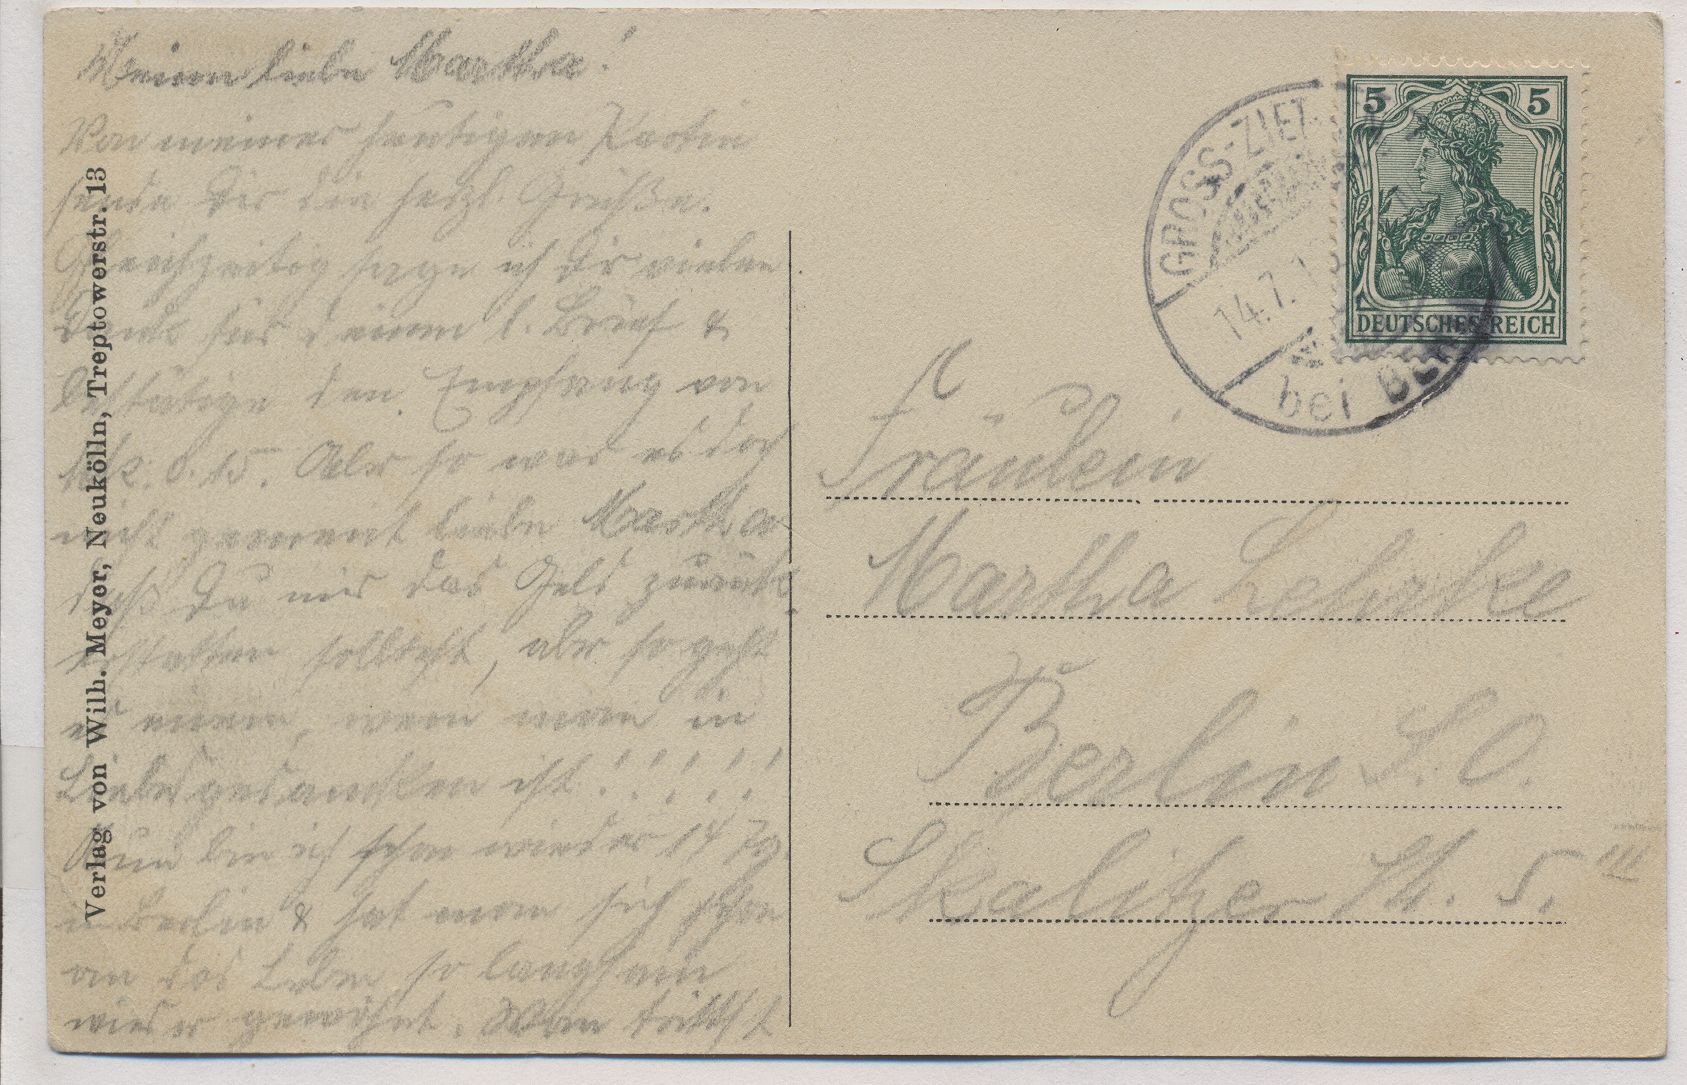 Meine liebe Martha!
Von meiner heutigen Partie
sende Dir die herzl. Grüße.
Gleichzeitig sage ich Dir vielen
Dank für Deinen l. Brief &
bestätige den Empfang von
Mk. 0.15. Aber so war es doch
nicht gemeint liebe Martha
daß Du mir das Geld zurück
erstatten solltest, aber so geht
es einem, wenn man in
Liebesgedanken ist!!!!!!
Nun bin ich schon wieder 14 Tg
in Berlin & hat man sich schon
an das Leben so langsam
wieder gewöhnt. Wann trittst
Verlag von Wilh. Meyer, Neukölln, Treptowerstr. 13
GROSS-ZIET
14.7.1
bei BER
5 5
DEUTSCHES REICH
Fräulein
Martha Lehrke
Berlin S.O.
Skalitzer St. 5. III